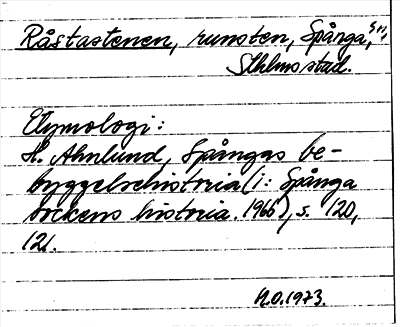 Råstastenen, runsten, Spånga sn,
Sthlms stad.
Etymologi:
H. Ahnlund, Spångas be-
byggelsehistoria (i: Spånga
sockens historia. 1966), s. 120,
121.
1973.